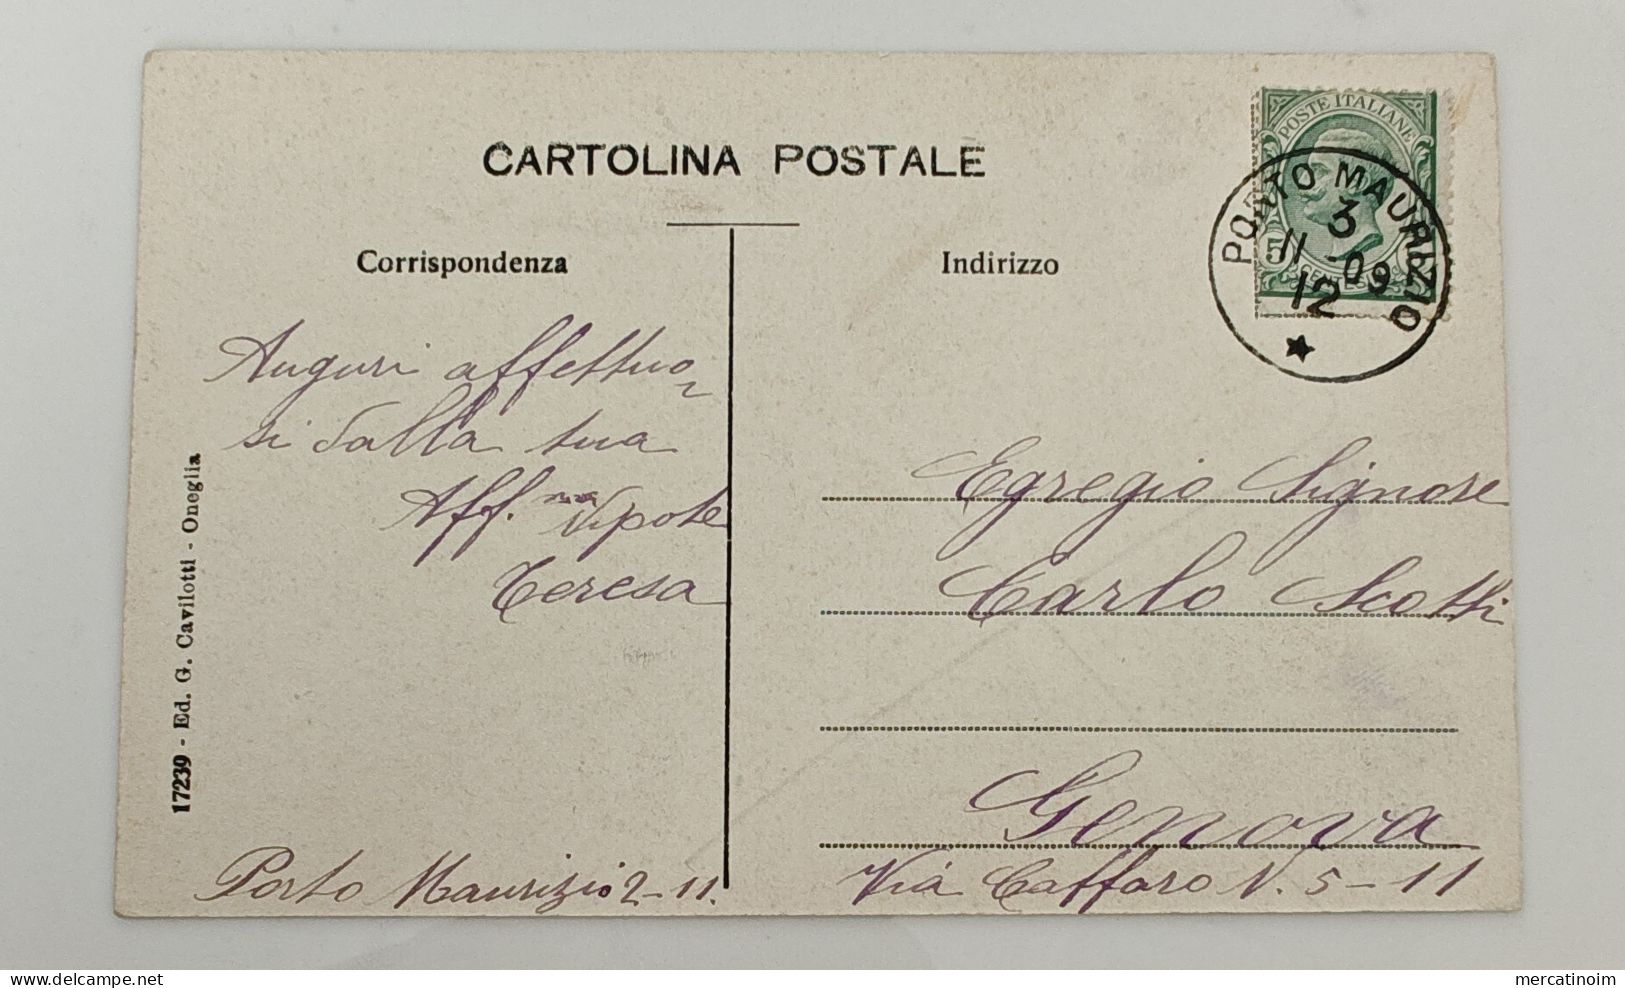 CARTOLINA POSTALE
Corrispondenza
Indirizzo
POSTE ITALIANE
5
PORTO MAURIZIO
3
11 · 09
12
Auguri affettuo-
si dalla tua
Aff.ma Nipote
Teresa
Porto Maurizio 2-11.
Egregio Signore
Carlo Scotti
Genova
Via Caffaro N. 5-11
17239 - Ed. G. Cavilotti - Oneglia
delcampe.net
mercatinoim